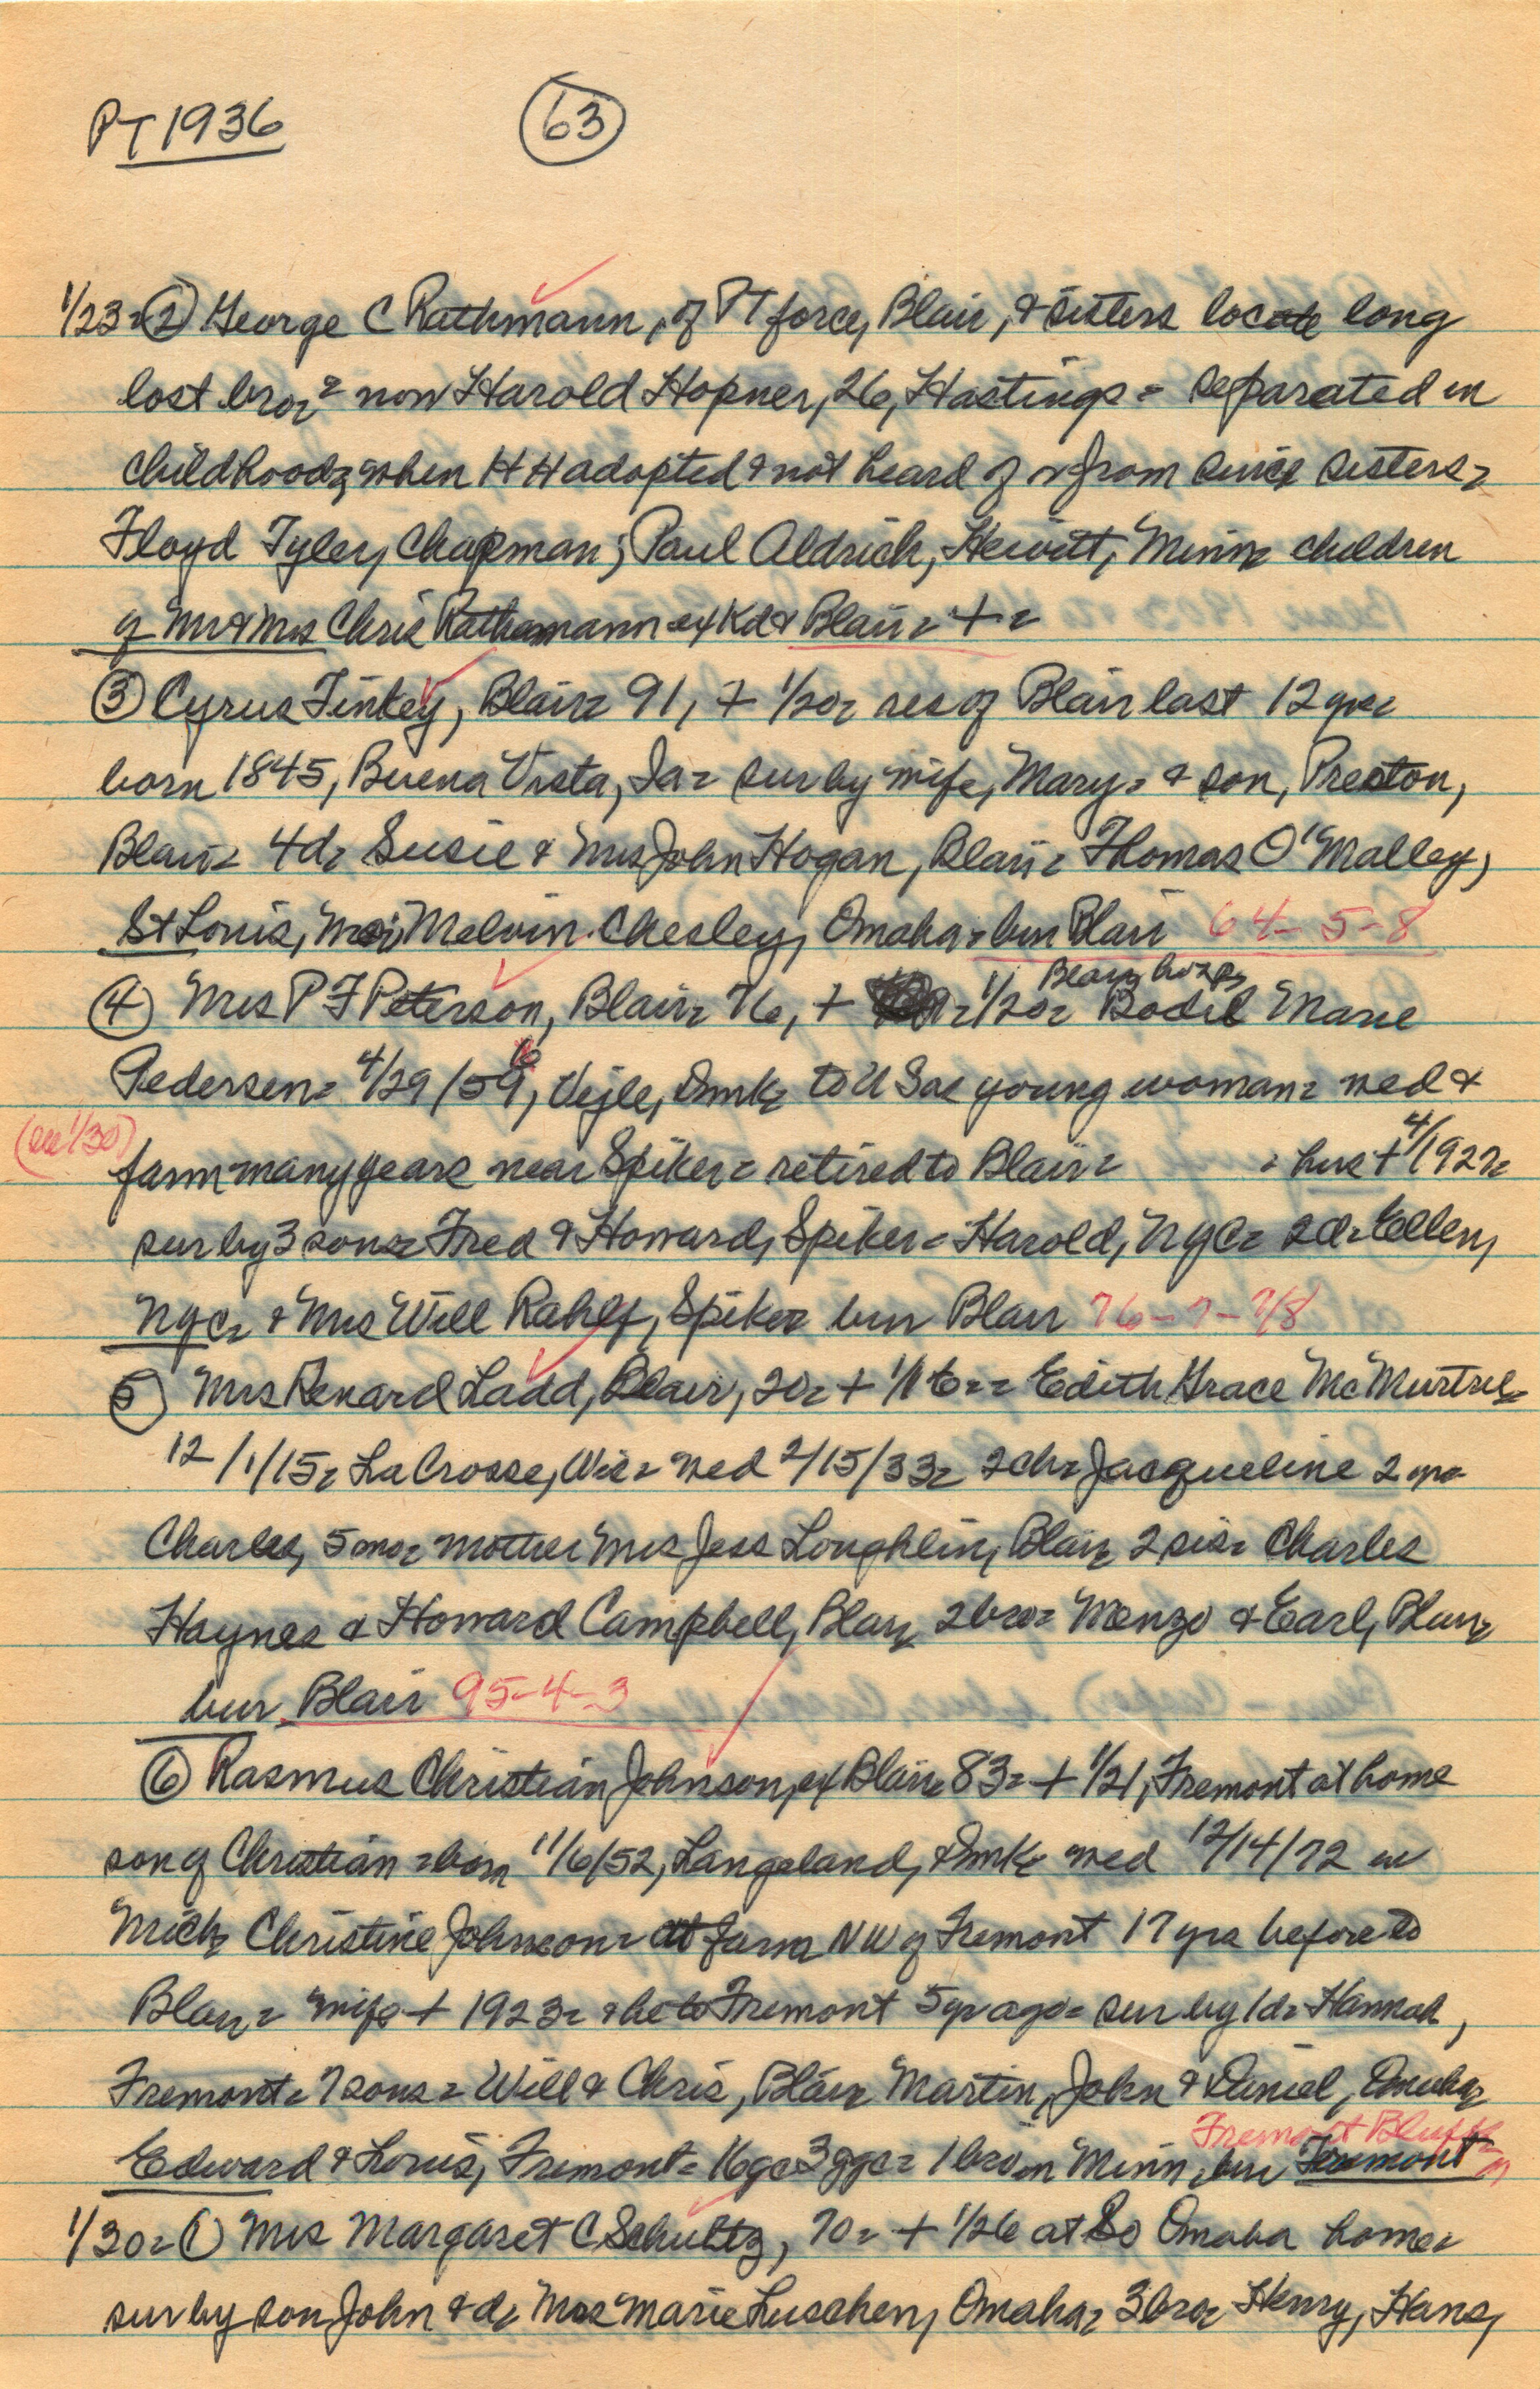 PT 1936
63
1/23 = (2) George C Rathmann, of PT force, Blair, & sisters locate long
lost bro = now Harold Hopner, 26, Hastings = separated in
childhood = when H H adopted & not heard of or from since sisters =
Floyd Tyler, Chapman; Paul Aldrich, Hewitt, Minn = children
of Mr & Mrs Chris Rathmann ex Kd & Blair = + =
(3) Cyrus Tinkey, Blair = 91, + 1/20 = res of Blair last 12 yrs =
born 1845, Buena Vista, Ia = sur by wife, Mary = & son, Preston,
Blair = 4d = Susie & Mrs John Hogan, Blair = Thomas O'Malley,
St Louis, Mo; Melvin Chesley, Omaha = bur Blair 64-5-8
Blair hosp
(4) Mrs P F Peterson, Blair = 76, + 1/20 = Bodil Marie
Pedersen = 4/29/59, Vejle, Dmk = to USa = young woman = wed &
(see 1/30)
farm many years near Spiker = retired to Blair = = hus + 4/1927 =
sur by 3 sons = Fred & Howard, Spiker = Harold, NYC = 2d = Ellen,
NYC = & Mrs Will Rahlf, Spiker bur Blair 76-7-7/8
(5) Mrs Renard Ladd, Blair, 20 = + 1/16 = = Edith Grace McMurtrie
12/1/15 = LaCrosse, Wis = wed 2/15/33 = 2ch = Jacqueline 2 yrs
Charles, 5 mo = mother Mrs Jess Loughlin, Blair = 2 sis = Charles
Haynes & Howard Campbell, Blair = 2 bro = Menzo & Earl, Blair =
bur Blair 95-4-3
(6) Rasmus Christian Johnson, ex Blair = 83 = + 1/21, Fremont at home
son of Christian = born 11/6/52, Langeland, Dmk = wed 12/14/72 in
Mich = Christine Johnson = at farm NW of Fremont 17 yrs before to
Blair = wife + 1923 = & he to Fremont 5 yr ago = sur by 1d = Hannah,
Fremont = 7 sons = Will & Chris, Blair = Martin, John & Daniel, Omaha =
Fremont Bluffs
Edward & Louis, Fremont = 16gc 3ggc = 1 bro in Minn = bur Fremont
1/30 = (1) Mrs Margaret C Schultz, 70 = + 1/26 at So Omaha home =
sur by son John & d = Mrs Marie Luschen, Omaha = 3 bro = Henry, Hans,